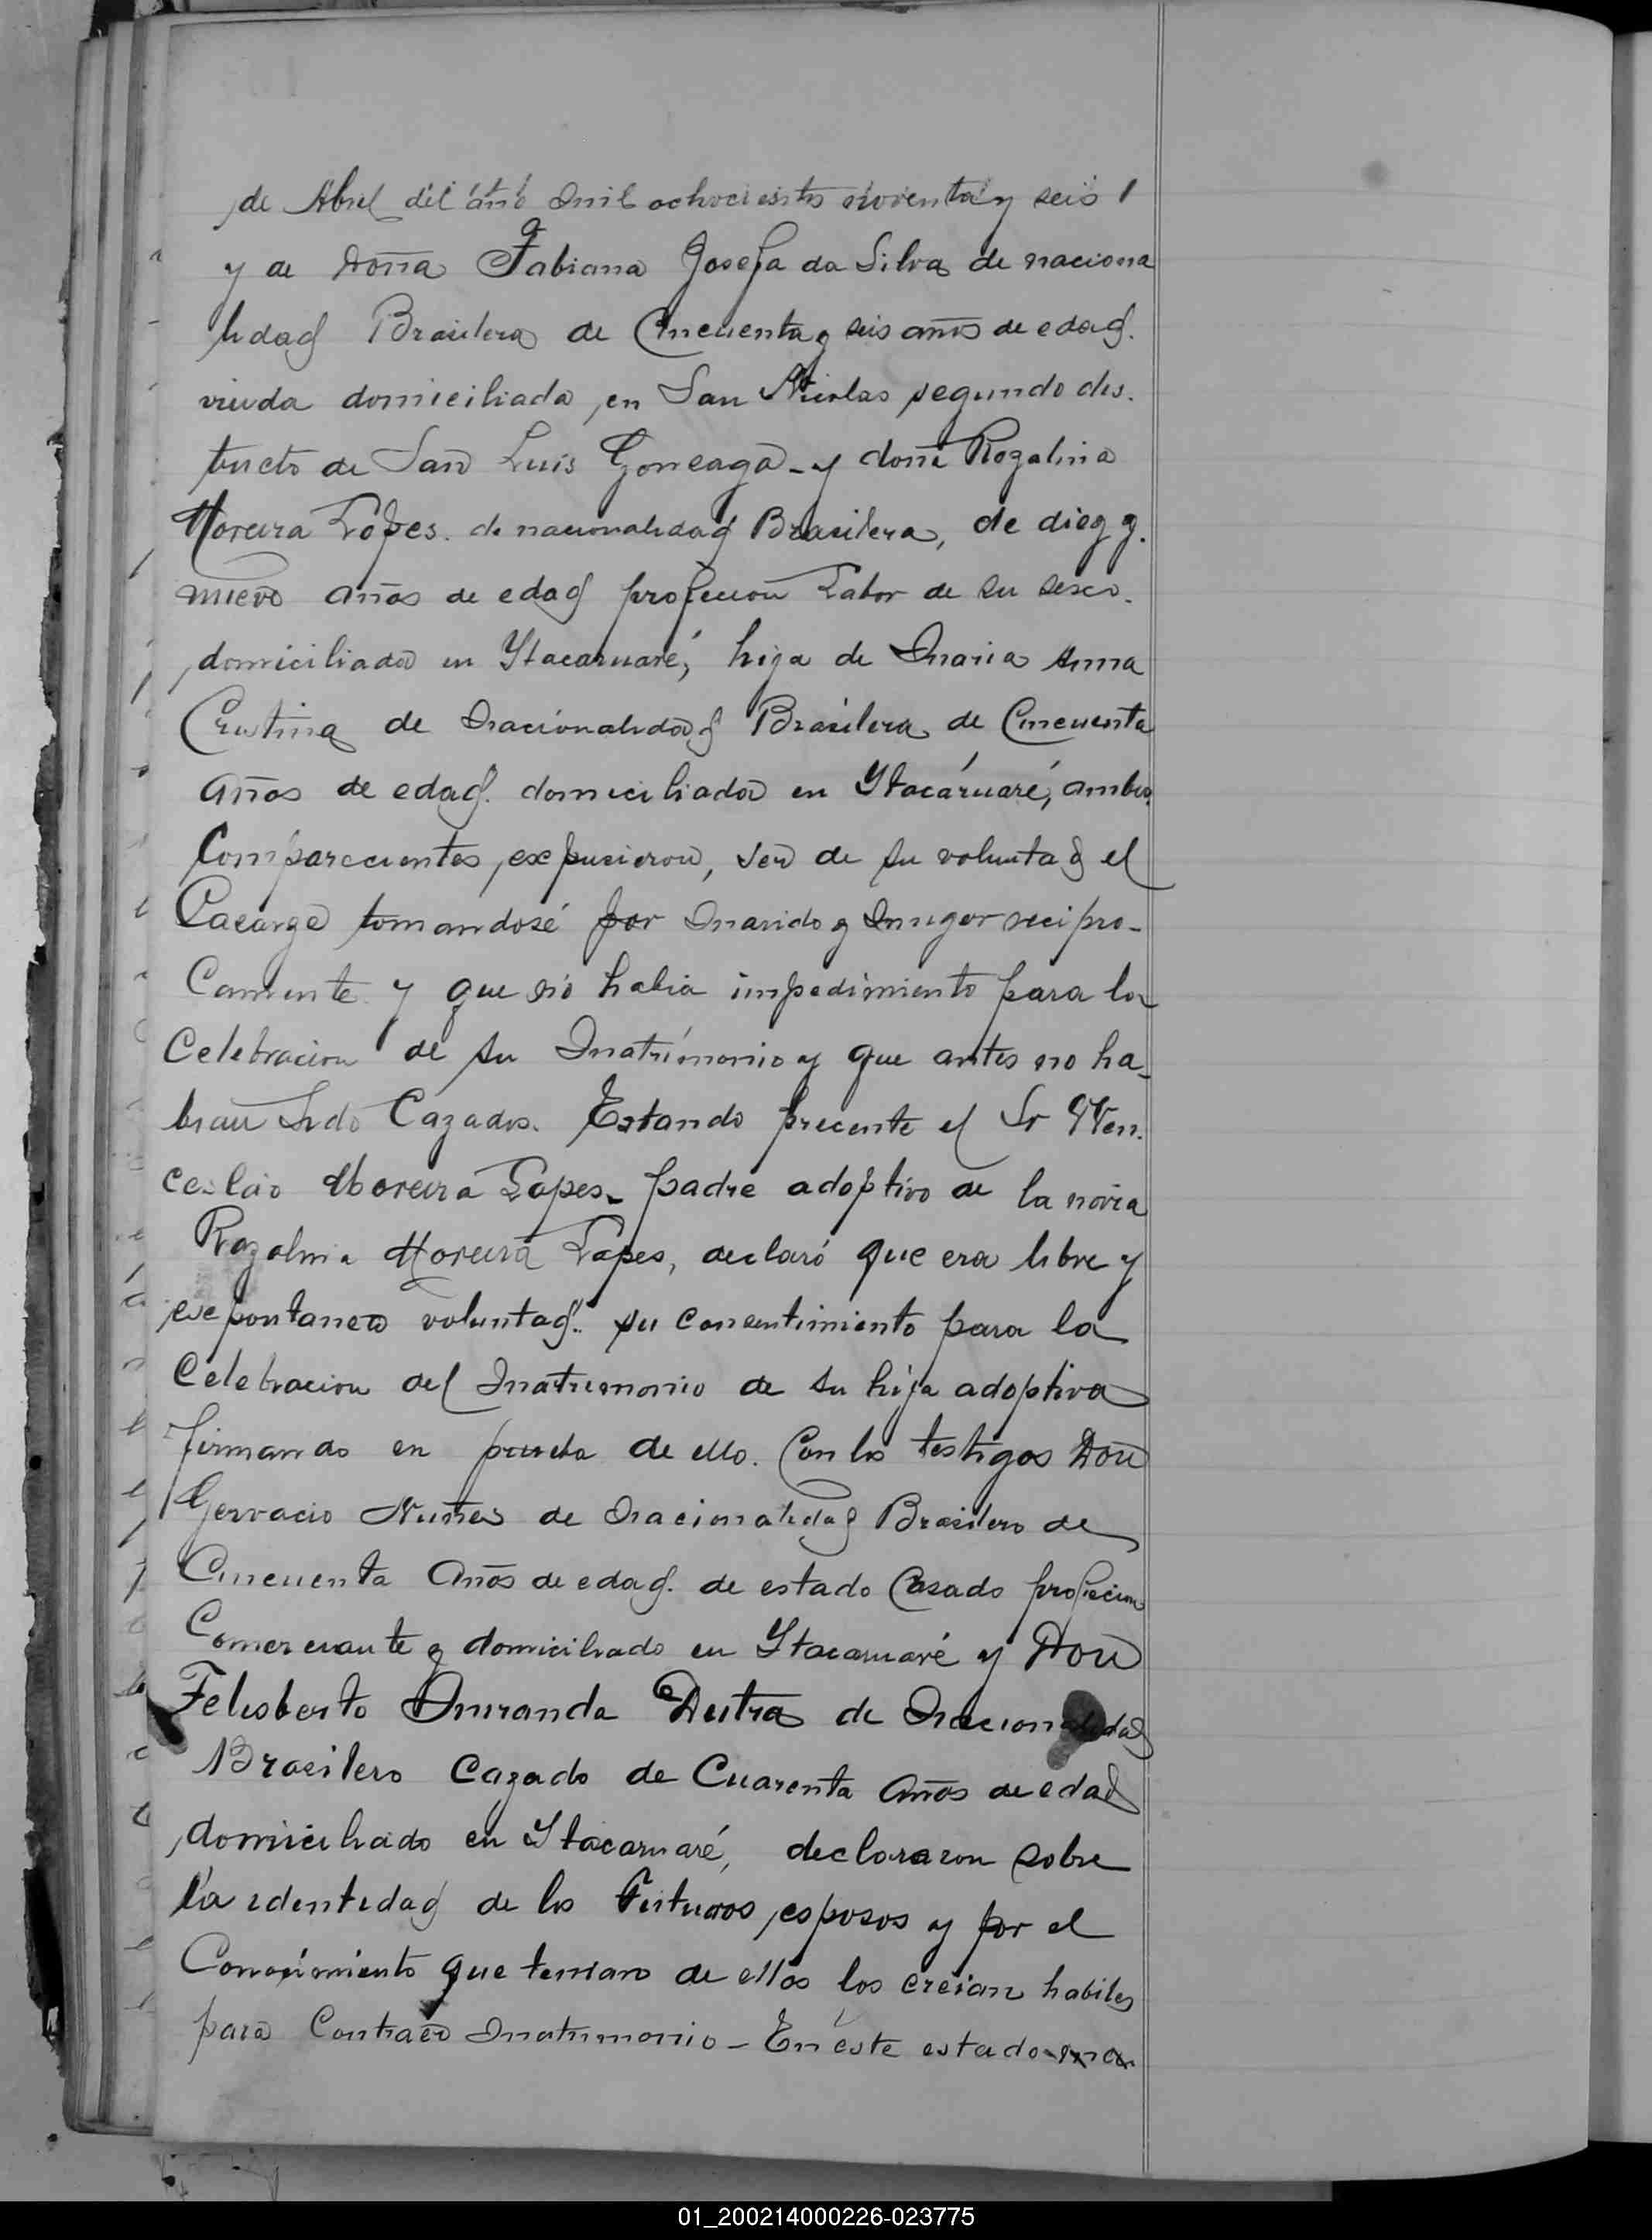 de Abril del año mil ochocientos noventa y seis
y de doña Fabiana Josefa da Silva de naciona
lidad Brasilera de Cincuenta y seis años de edad.
viuda domiciliada en San Nicolas segundo dis.
tricto de San Luis Goncaga - y doña Rozalina
Moreira Lopes. de nacionalidad Brasilera, de diez y.
nuevo años de edad profecion Labor de su sexo.
domiciliada en Ytacaruaré, hija de Maria Anna
Cristina de nacionalidad Brasilera de Cincuenta
años de edad. domiciliada en Ytacaruaré, ambos
Comparecientes expusieron, ser de su voluntad el
Cacarse tomandosé por marido y muger recipro-
Camente y que no habia impedimiento para la
Celebracion de su matrimonio y que antes no ha-
bian sido Cazados. Estando precente el Sr Wen.
ceslao Moreira Lopes - padre adoptivo de la novia
Rozalina Moreira Lopes, declaró que era libre y
expontanea voluntad. su concentimiento para la
Celebracion del matrimonio de su hija adoptiva
firmando en prueba de ello. Con los testigos Don
Gervacio Nuñes de nacionalidad Brasilero de
Cincuenta años de edad. de estado Casado profecion
Comerciante y domiciliado en Ytacaruaré y Don
Felisberto Miranda Dutra de nacionalidad
Brasilero Cazado de Cuarenta años de edad
domiciliado en Ytacaruaré, declararon sobre
la identidad de los Futuros esposos y por el
Conocimiento que tenian de ellos los creian habiles
para Contraer matrimonio - En este estado
01_200214000226-023775